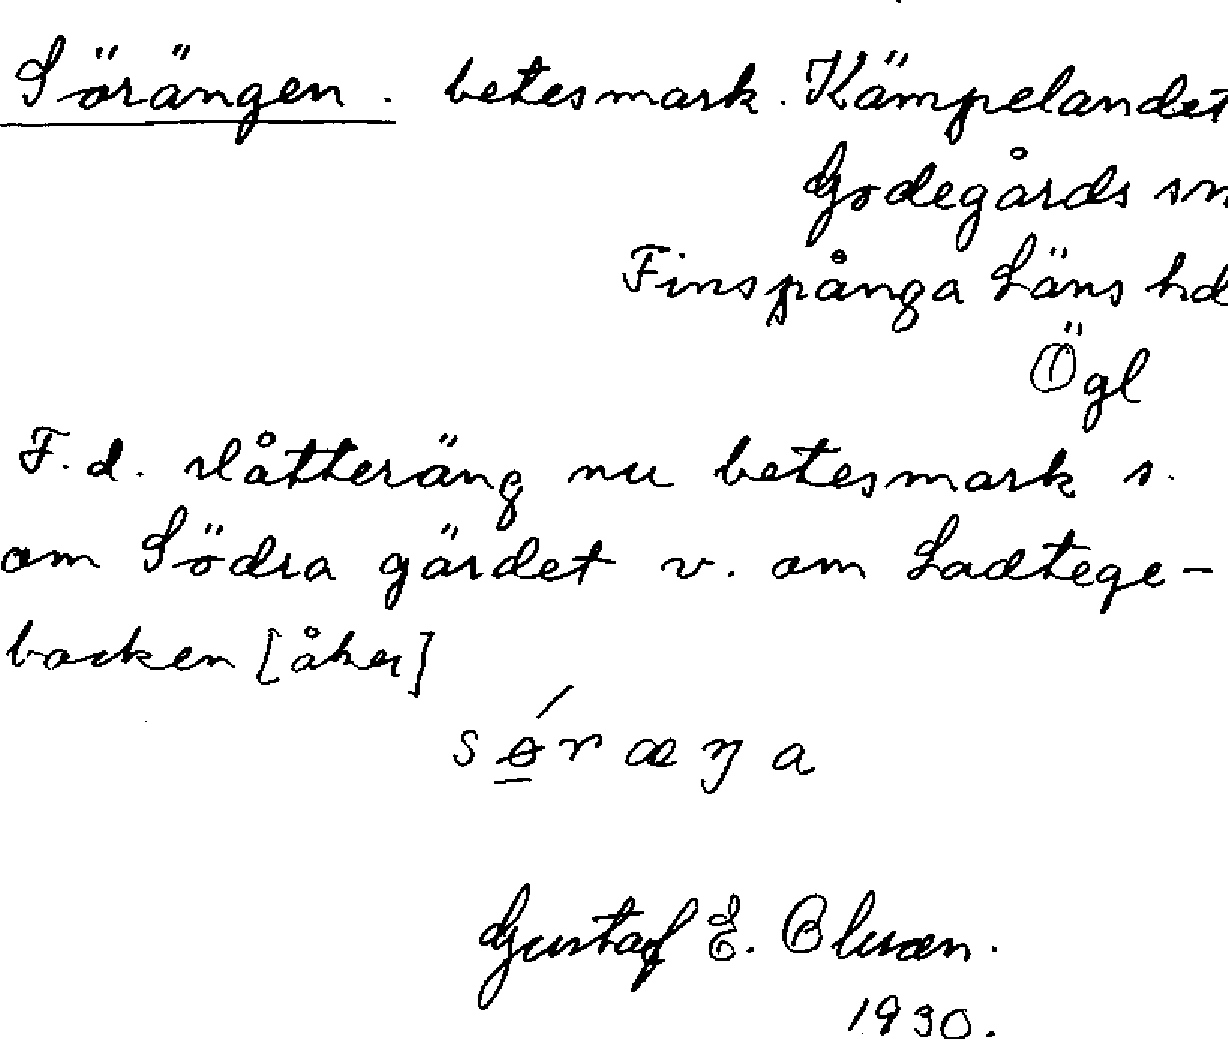 Sörängen. betesmark. Kämpelandet
Godegårds sn
Finspånga Läns hd
Ögl
F. d. slåtteräng nu betesmark s.
om Södra gärdet v. om Ladtege-
backen [åker]
sɵ́ræŋa
Gustaf E.
1930.